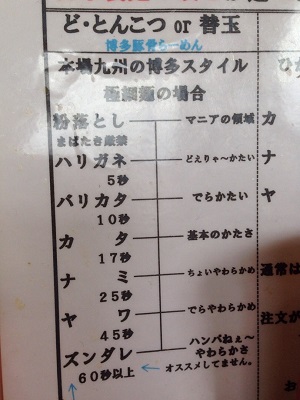 ど・とんこつ or 替玉
博多豚骨らーめん
本場九州の博多スタイル
極細麺の場合
粉落とし マニアの領域
まばたき厳禁
ハリガネ どえりゃ〜かたい
5秒
バリカタ でらかたい
10秒
カタ 基本のかたさ
17秒
ナミ ちょいやわらかめ
25秒
ヤワ でらやわらかめ
45秒
ズンダレ ハンパねぇ〜やわらかさ
60秒以上 オススメしてません。
ひか
カ
ナ
ヤ
通常は
注文が
お